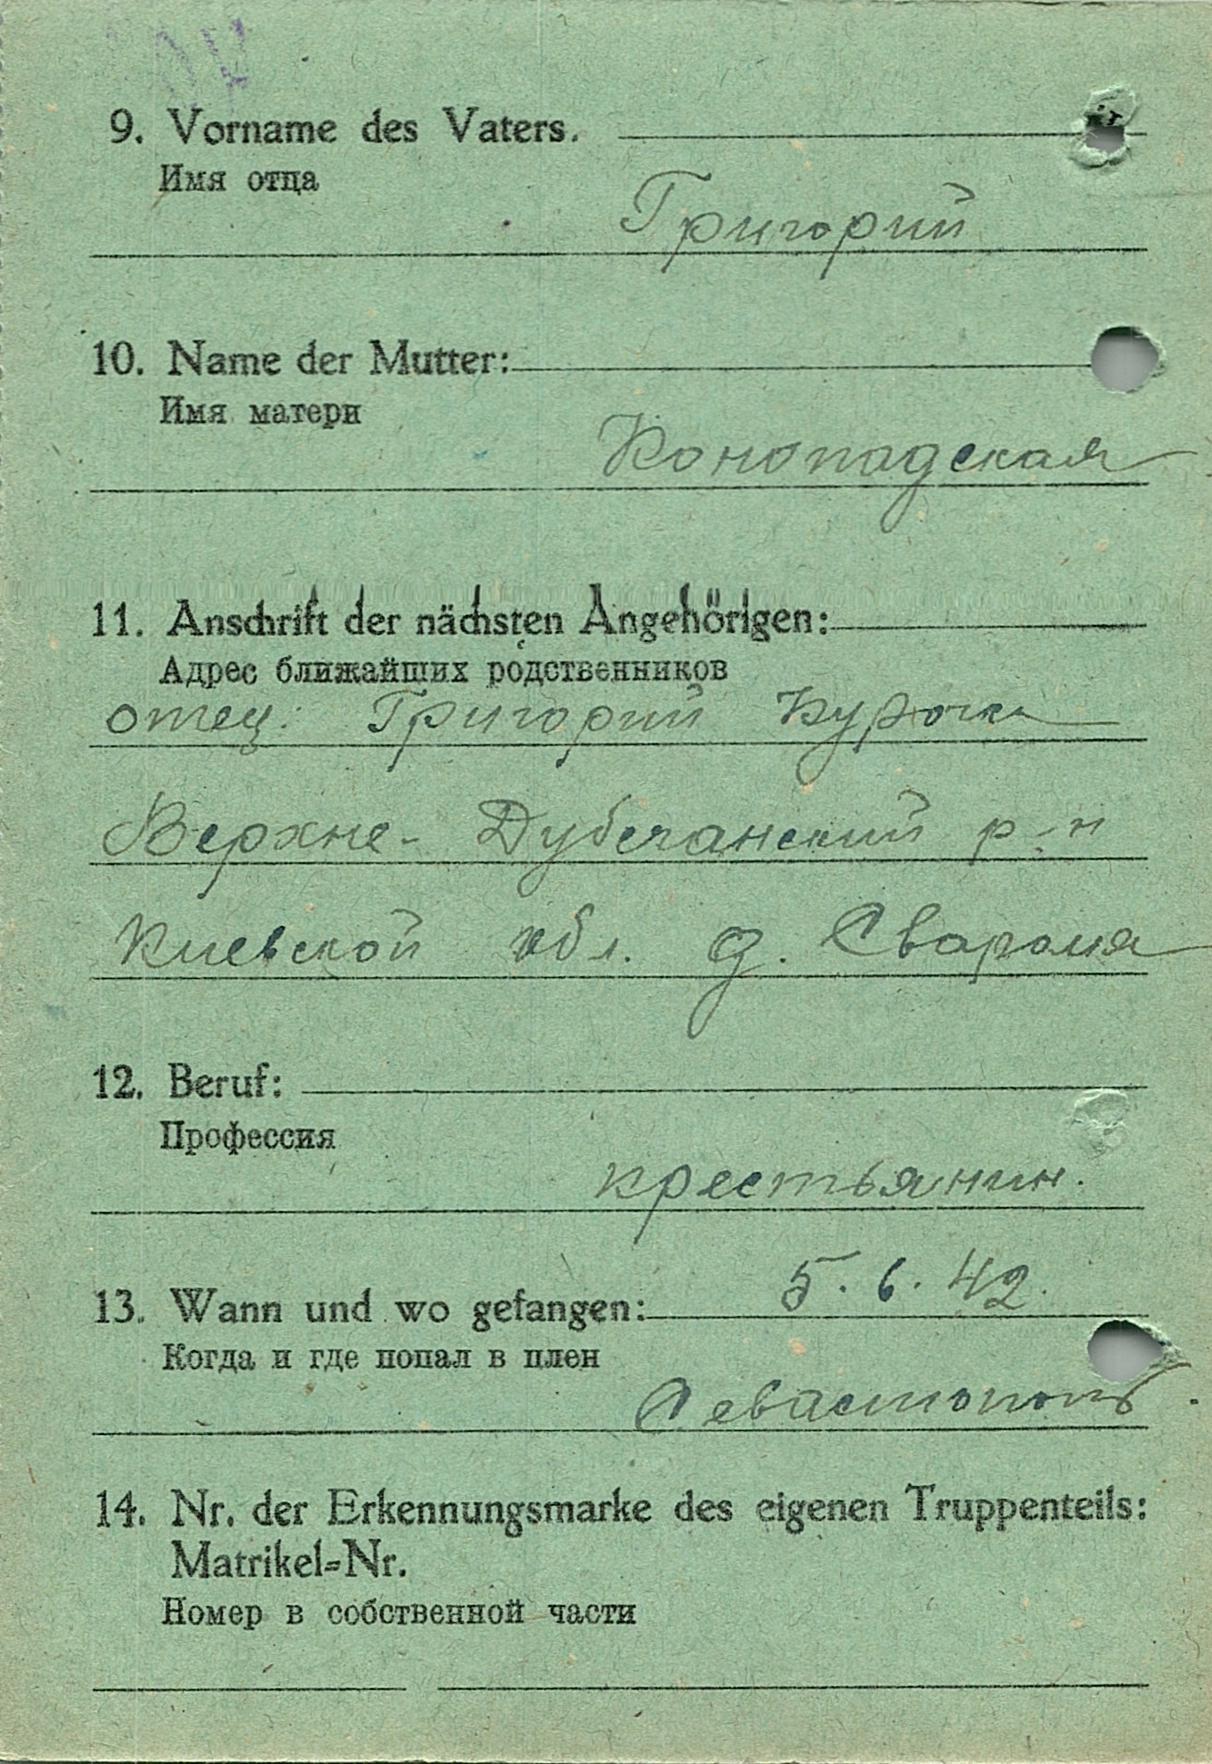 9. Vorname des Vaters.
Имя отца
Григорий
10. Name der Mutter:
Имя матери
Конопадская
11. Anschrift der nächsten Angehörigen:
Адрес ближайших родственников
отец: Григорий Курочка
Верхне-Дубечанский р-н
Киевской обл. д. Сваромя
12. Beruf:
Профессия
крестьянин.
5.6.42.
13. Wann und wo gefangen:
Когда и где попал в плен
Севастополь.
14. Nr. der Erkennungsmarke des eigenen Truppenteils:
Matrikel=Nr.
Номер в собственной части